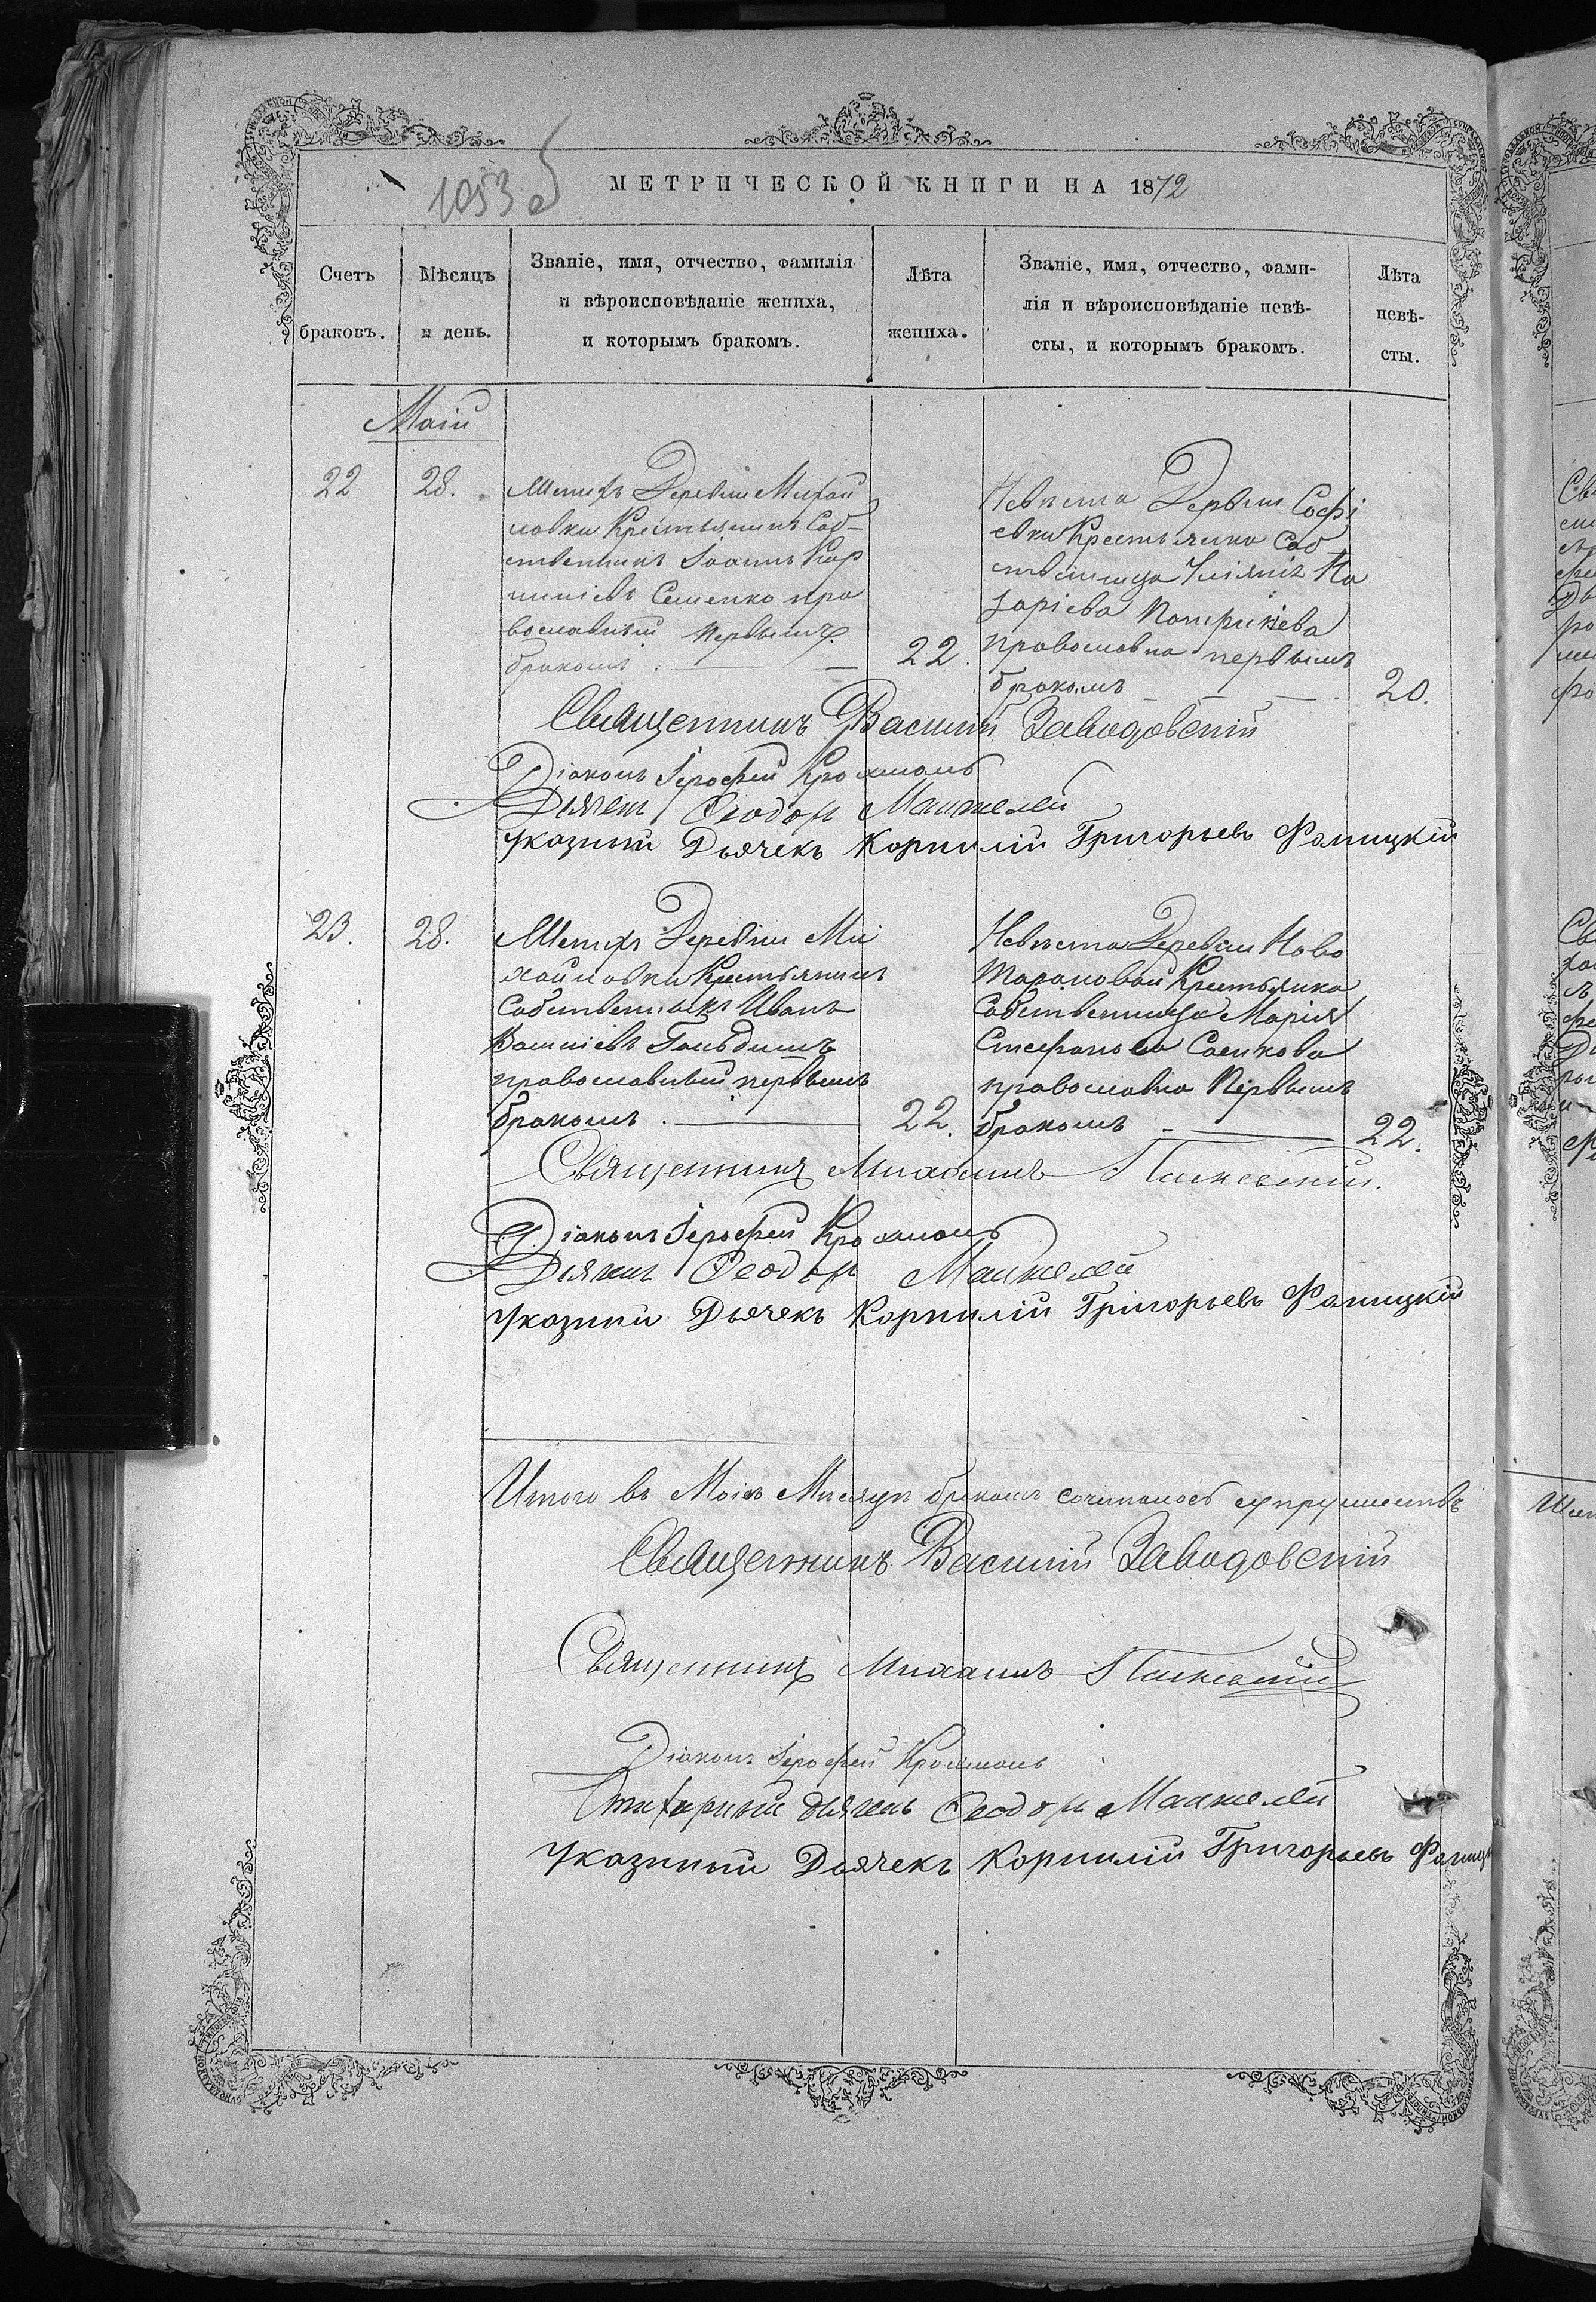 1053 об
МЕТРИЧЕСКОЙ КНИГИ НА 1872
Счетъ браковъ.
Мѣсяцъ и день.
Званіе, имя, отчество, фамилія
и вѣроисповѣданіе жениха,
и которымъ бракомъ.
Лѣта жениха.
Званіе, имя, отчество, фами-
лія и вѣроисповѣданіе невѣ-
сты, и которымъ бракомъ.
Лѣта невѣ-
сты.
Маій
22 28.
Женихъ Деревни Михай
ловки Крестьянинъ Соб-
ственникъ Іоаннъ Кор
ниліевъ Семенко пра
вославный первымъ
бракомъ. 22.
Невѣста Деревни Софі
евки Крестьянка Соб
ственница Уліянія На
заріева
православна первымъ
бракомъ 20.
Священникъ Василій Заводовскій
Діаконъ Іерофей Крохмаль
Дьячекъ Ѳеодоръ Манжелей
Указный Дьячекъ Корнилій Григорьевъ Фалицкій
23. 28.
Женихъ Деревни Ми
хайловки Крестьянинъ
Собственникъ Иванъ
православный первымъ
бракомъ. 22.
Невѣста Деревни Ново
Тарановки Крестьянка
Собственница Марія
Стефанова Сасикова
православна первымъ
бракомъ 22.
Священникъ Михаилъ
Діаконъ Іерофей Крохмаль
Дьячекъ Ѳеодоръ Манжелей
Указный Дьячекъ Корнилій Григорьевъ Фалицкій
Итого въ Маіѣ Мѣсяцѣ бракомъ сочеталось супружествъ
Священникъ Василій Заводовскій
Священникъ Михаилъ
Діаконъ Іерофей Крохмаль
дьячекъ Ѳеодоръ Манжелей
Указный Дьячекъ Корнилій Григорьевъ